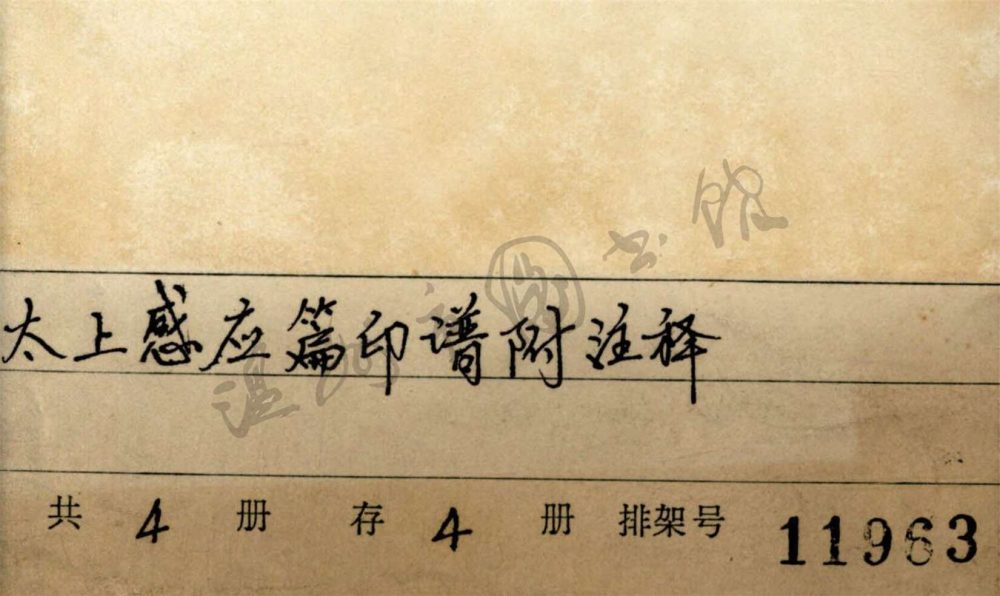 太上感应篇印谱附注释
共 4 册 存 4 册 排架号 11963
温州市图书馆